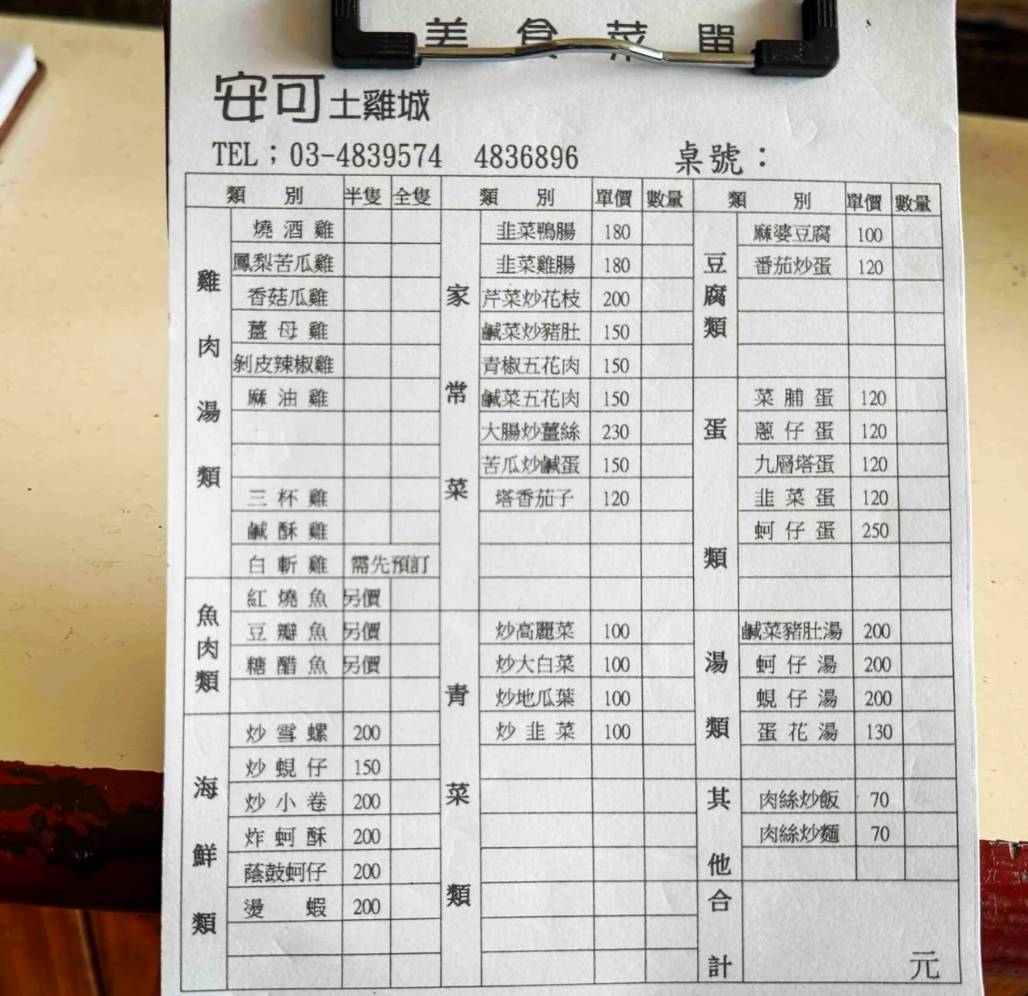 美食菜單
安可土雞城
TEL；03-4839574 4836896 桌號：
類別 半隻 全隻
雞肉湯類
燒酒雞
鳳梨苦瓜雞
香菇瓜雞
薑母雞
剝皮辣椒雞
麻油雞
三杯雞
鹹酥雞
白斬雞 需先預訂
魚肉類
紅燒魚 另價
豆瓣魚 另價
糖醋魚 另價
海鮮類
炒雪螺 200
炒蜆仔 150
炒小卷 200
炸蚵酥 200
蔭鼓蚵仔 200
燙蝦 200
類別 單價 數量
家常菜
韭菜鴨腸 180
韭菜雞腸 180
芹菜炒花枝 200
鹹菜炒豬肚 150
青椒五花肉 150
鹹菜五花肉 150
大腸炒薑絲 230
苦瓜炒鹹蛋 150
塔香茄子 120
青菜類
炒高麗菜 100
炒大白菜 100
炒地瓜葉 100
炒韭菜 100
類別 單價 數量
豆腐類
麻婆豆腐 100
番茄炒蛋 120
蛋類
菜脯蛋 120
蔥仔蛋 120
九層塔蛋 120
韭菜蛋 120
蚵仔蛋 250
湯類
鹹菜豬肚湯 200
蚵仔湯 200
蜆仔湯 200
蛋花湯 130
其他
肉絲炒飯 70
肉絲炒麵 70
合計 元